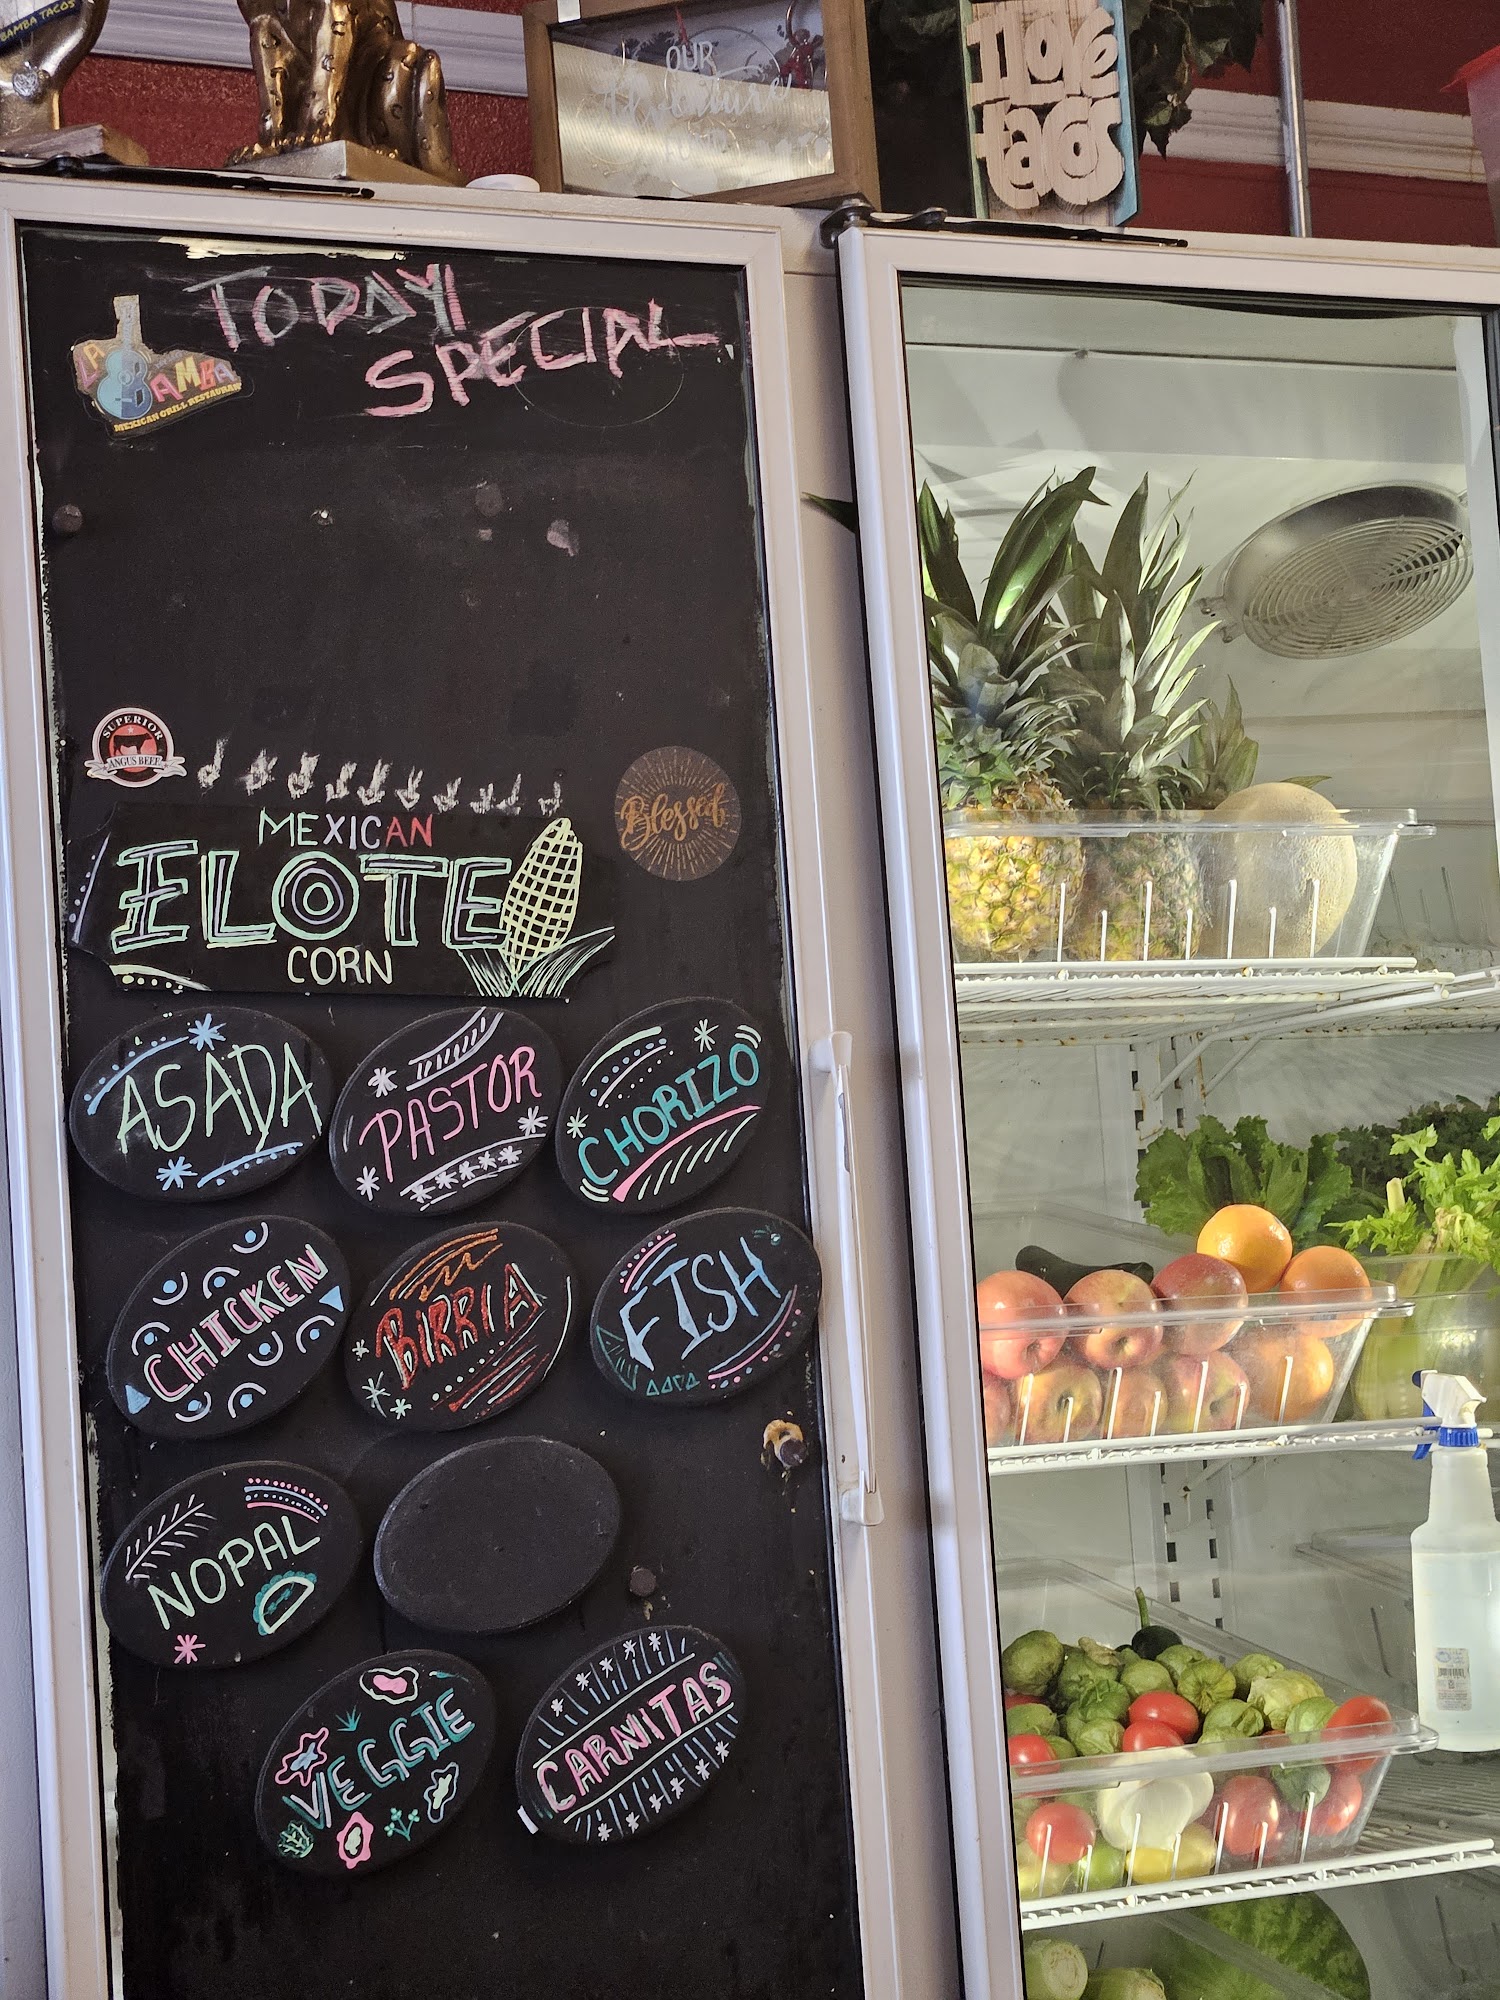 BAMBA TACOS
OUR
Adventure
I love
tacos
TODAY
SPECIAL
LA
BAMBA
MEXICAN GRILL RESTAURANT
SUPERIOR
ANGUS BEEF
Blessed
MEXICAN
ELOTE
CORN
ASADA
PASTOR
CHORIZO
CHICKEN
BIRRIA
FISH
NOPAL
VEGGIE
CARNITAS